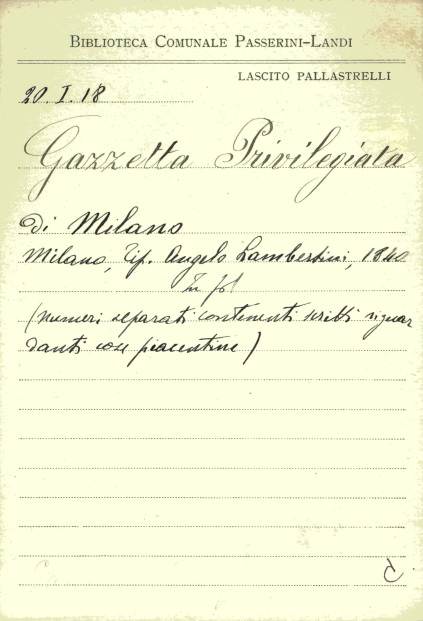 BIBLIOTECA COMUNALE PASSERINI-LANDI
LASCITO PALLASTRELLI
20. I. 18
Gazzetta Privilegiata
di Milano
Milano, Tip. Angelo Lambertini, 1840
In fol
(numeri separati contenenti scritti riguar
danti cose piacentine)
C